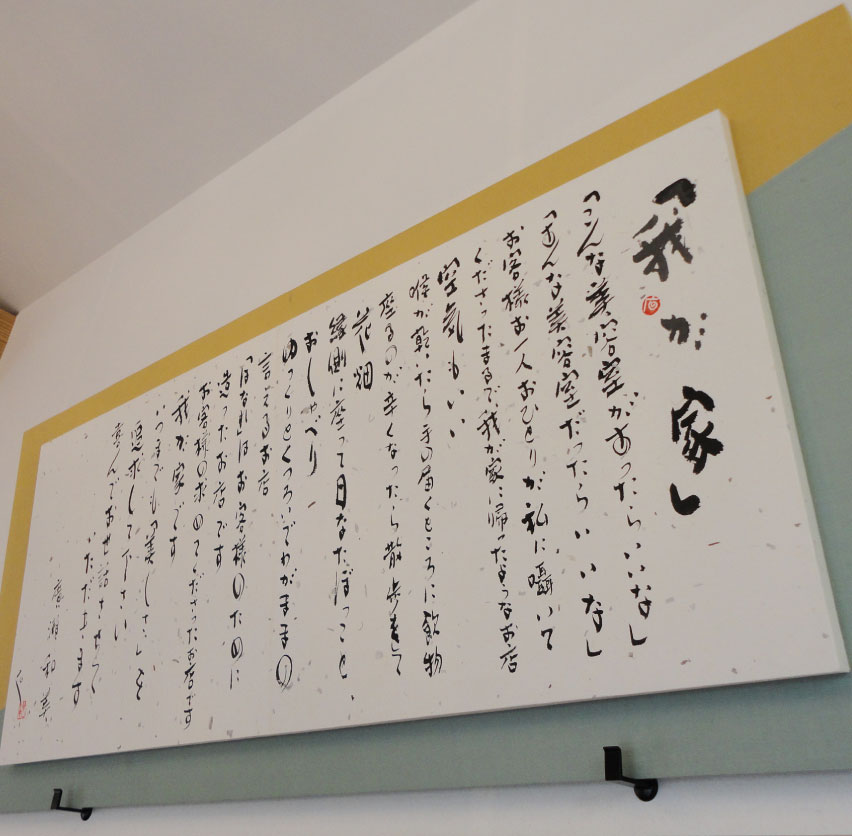 「我が家」
「こんな美容室があったらいいな」
「あんな美容室だったらいいな」
お客様お一人おひとりが私に囁いて
くださったまるで我が家に帰ったようなお店
空気もいい
喉が乾いたら手の届くところに飲物
座るのが辛くなったら散歩をして
花畑
縁側に座って日なたぼっこと、
おしゃべり
ゆっくりとくつろいでわがままの
言えるお店
「はなれ」はお客様のために
造ったお店です
お客様の求めてくださったお店です
我が家です
いつまでも「美しさ」を
追求して下さい
喜んでお世話させて
いただきます
和美